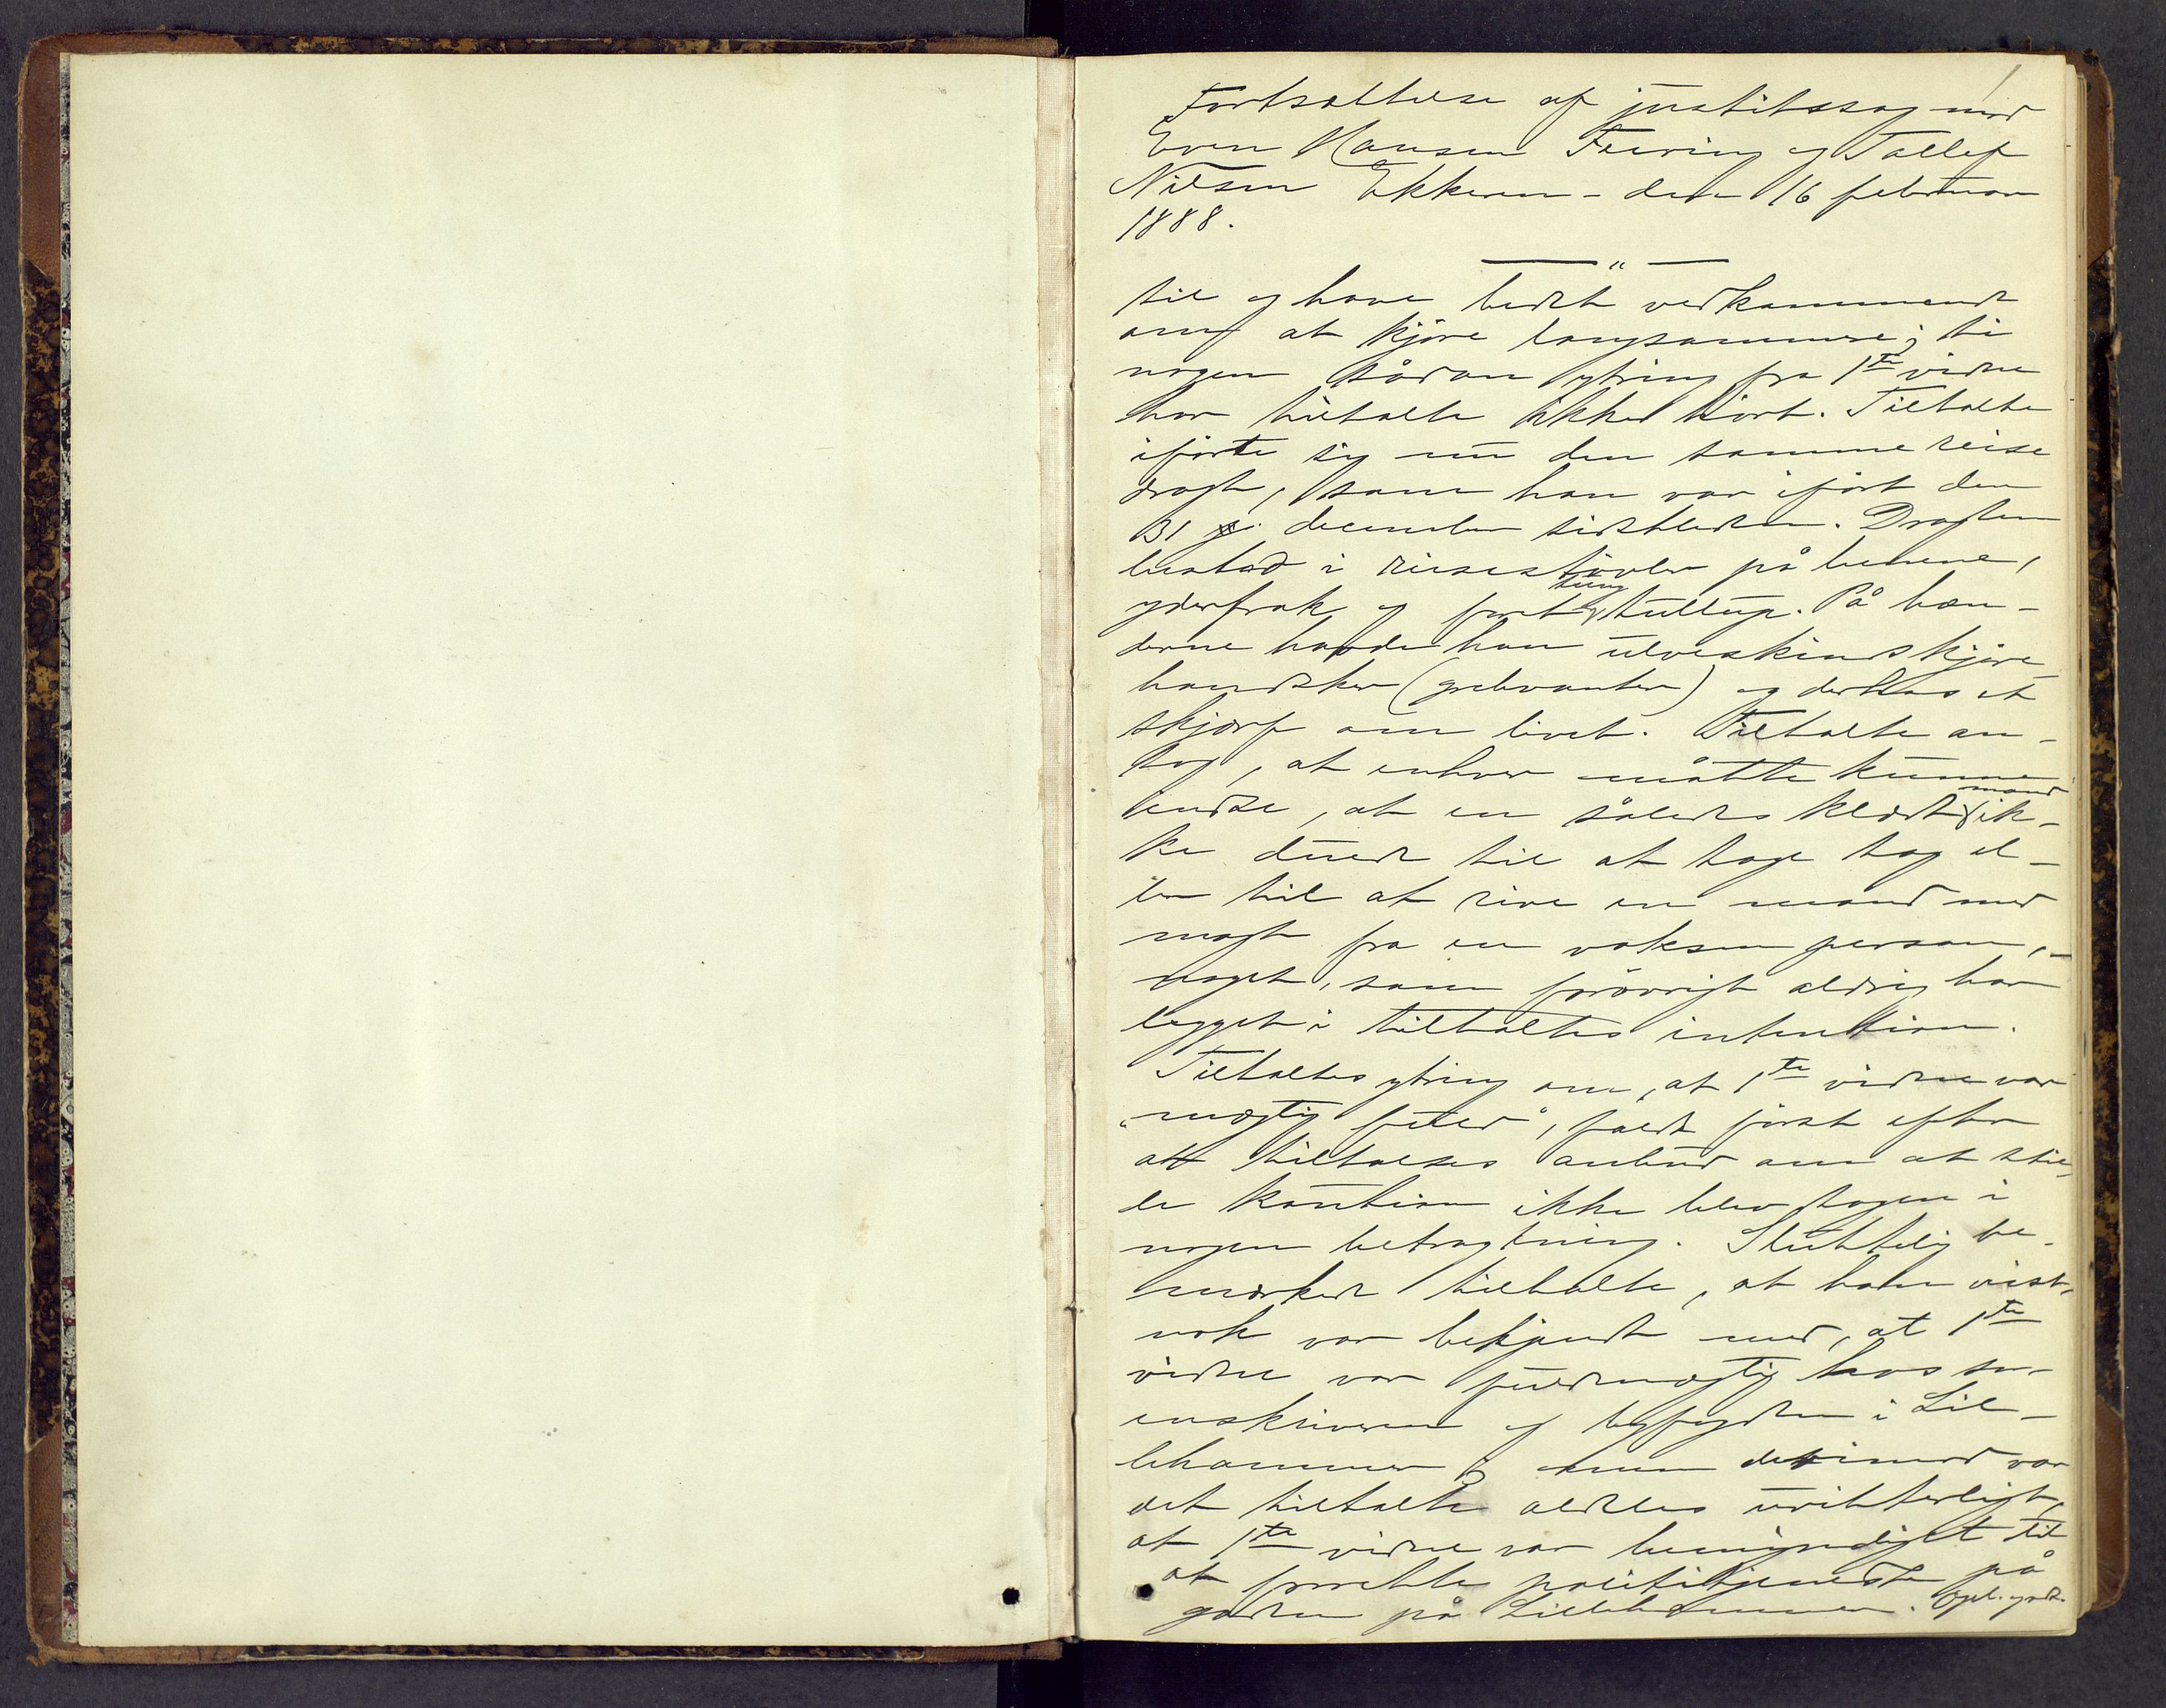 1
Fortsættelse af justitssag mod
Even Hansen Feiring og Tollef
Nilsen Ekkern – den 16 februar
1888.
— " —
til og have bedt vedkommende
om at kjøre langsommere; ti
nogen sådan ytring fra 1ste vidne
har tiltalte ikke hørt. Tiltalte
iførte sig nu den samme reise
dragt, som han var iført den
31 december sidstleden. Dragten
bestod i reisestøvler på benene,
yderfrak og foret tung tullup. På hæn-
derne havde han ulveskindskjøre
handsker (grebvanter) og derhos et
skjærf om livet. Tiltalte an-
tog, at enhver måtte kunne
indse, at en således klædt mand ik-
ke duede til at tage tag el-
ler til at rive en mand med
magt fra en voksen person, –
noget, som forøvrigt aldrig har
ligget i tiltaltes intention.
Tiltaltes ytring om, at 1ste vidne var
"mægtig fuld", faldt først efter
at tiltaltes anbud om at stil-
le kaution ikke blev tagen i
nogen betragtning. Sluttelig be-
mærkede tiltalte, at han vist-
nok var bekjendt med, at 1ste
vidne var fuldmægtig hos sor-
enskriveren og byfogden i Lil-
lehammer; men derimod var
det tiltalte aldeles uvitterligt,
at 1ste vidne var bemyndiget til
at forrette polititjeneste på
gaden på Lillehammer. Opl. godk.